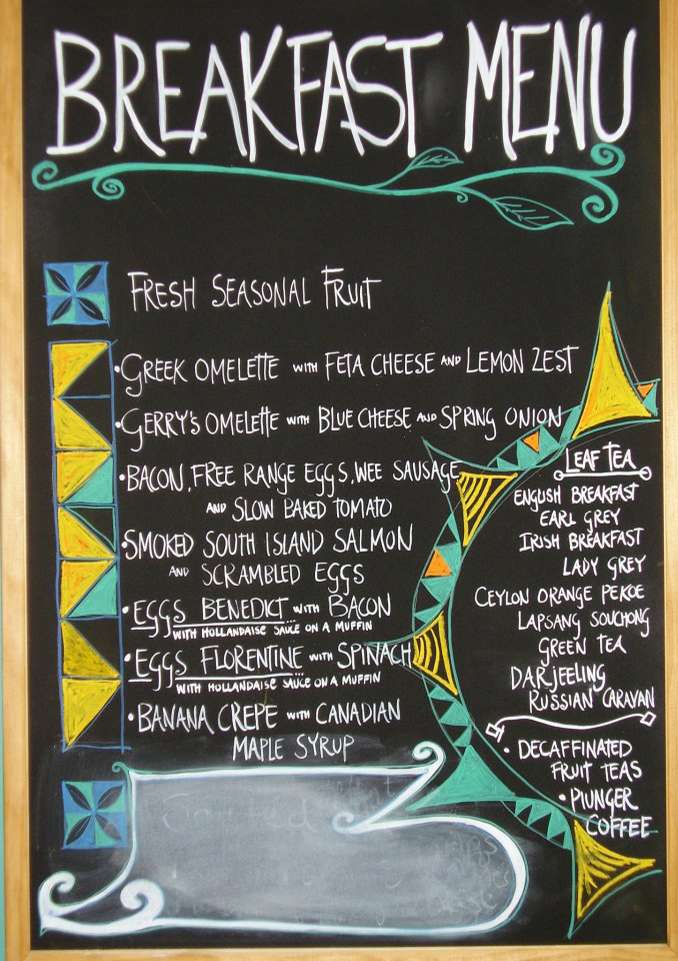 BREAKFAST MENU
FRESH SEASONAL FRUIT
•GREEK OMELETTE WITH FETA CHEESE AND LEMON ZEST
•GERRY'S OMELETTE WITH BLUE CHEESE AND SPRING ONION
•BACON, FREE RANGE EGGS, WEE SAUSAGE
AND SLOW BAKED TOMATO
•SMOKED SOUTH ISLAND SALMON
AND SCRAMBLED EGGS
•EGGS BENEDICT WITH BACON
WITH HOLLANDAISE SAUCE ON A MUFFIN
•EGGS FLORENTINE WITH SPINACH
WITH HOLLANDAISE SAUCE ON A MUFFIN
•BANANA CREPE WITH CANADIAN
MAPLE SYRUP
LEAF TEA
ENGLISH BREAKFAST
EARL GREY
IRISH BREAKFAST
LADY GREY
CEYLON ORANGE PEKOE
LAPSANG SOUCHONG
GREEN TEA
DARJEELING
RUSSIAN CARAVAN
• DECAFFINATED
FRUIT TEAS
• PLUNGER
COFFEE